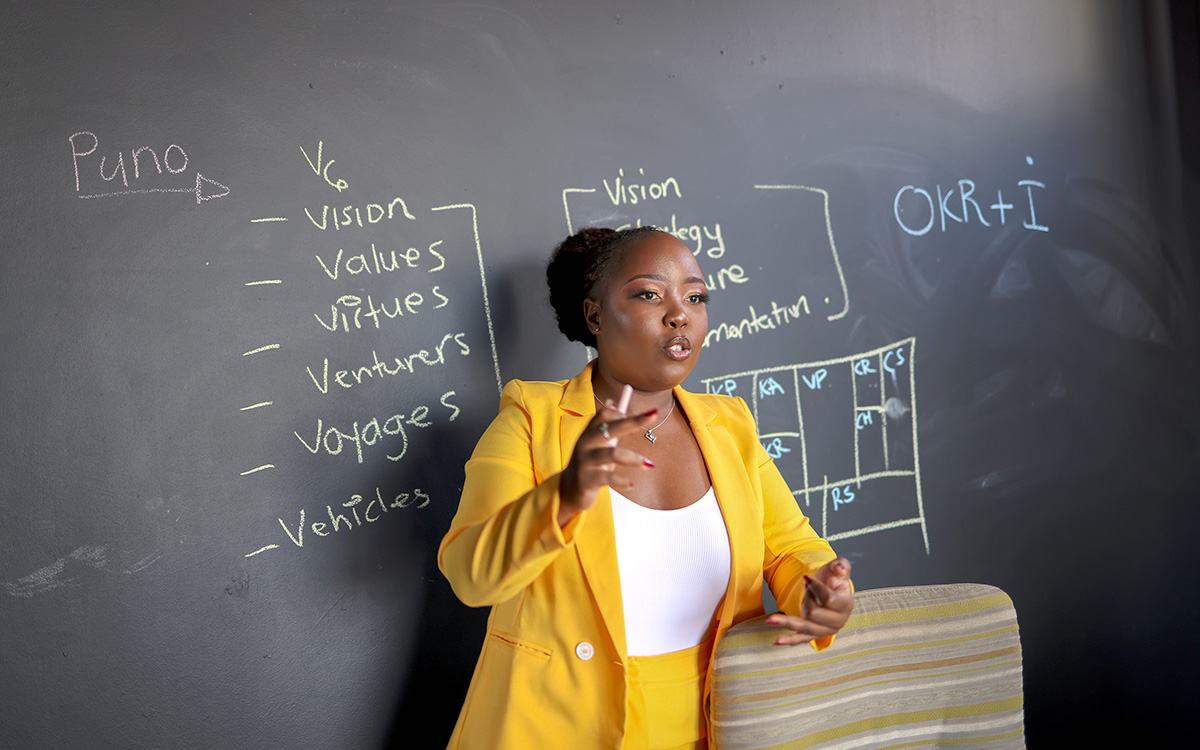 Puno
V6
Vision
Values
Virtues
Venturers
Voyages
Vehicles
Vision
Strategy
OKR+i
KP
KA
VP
CR
CS
KR
CH
RS